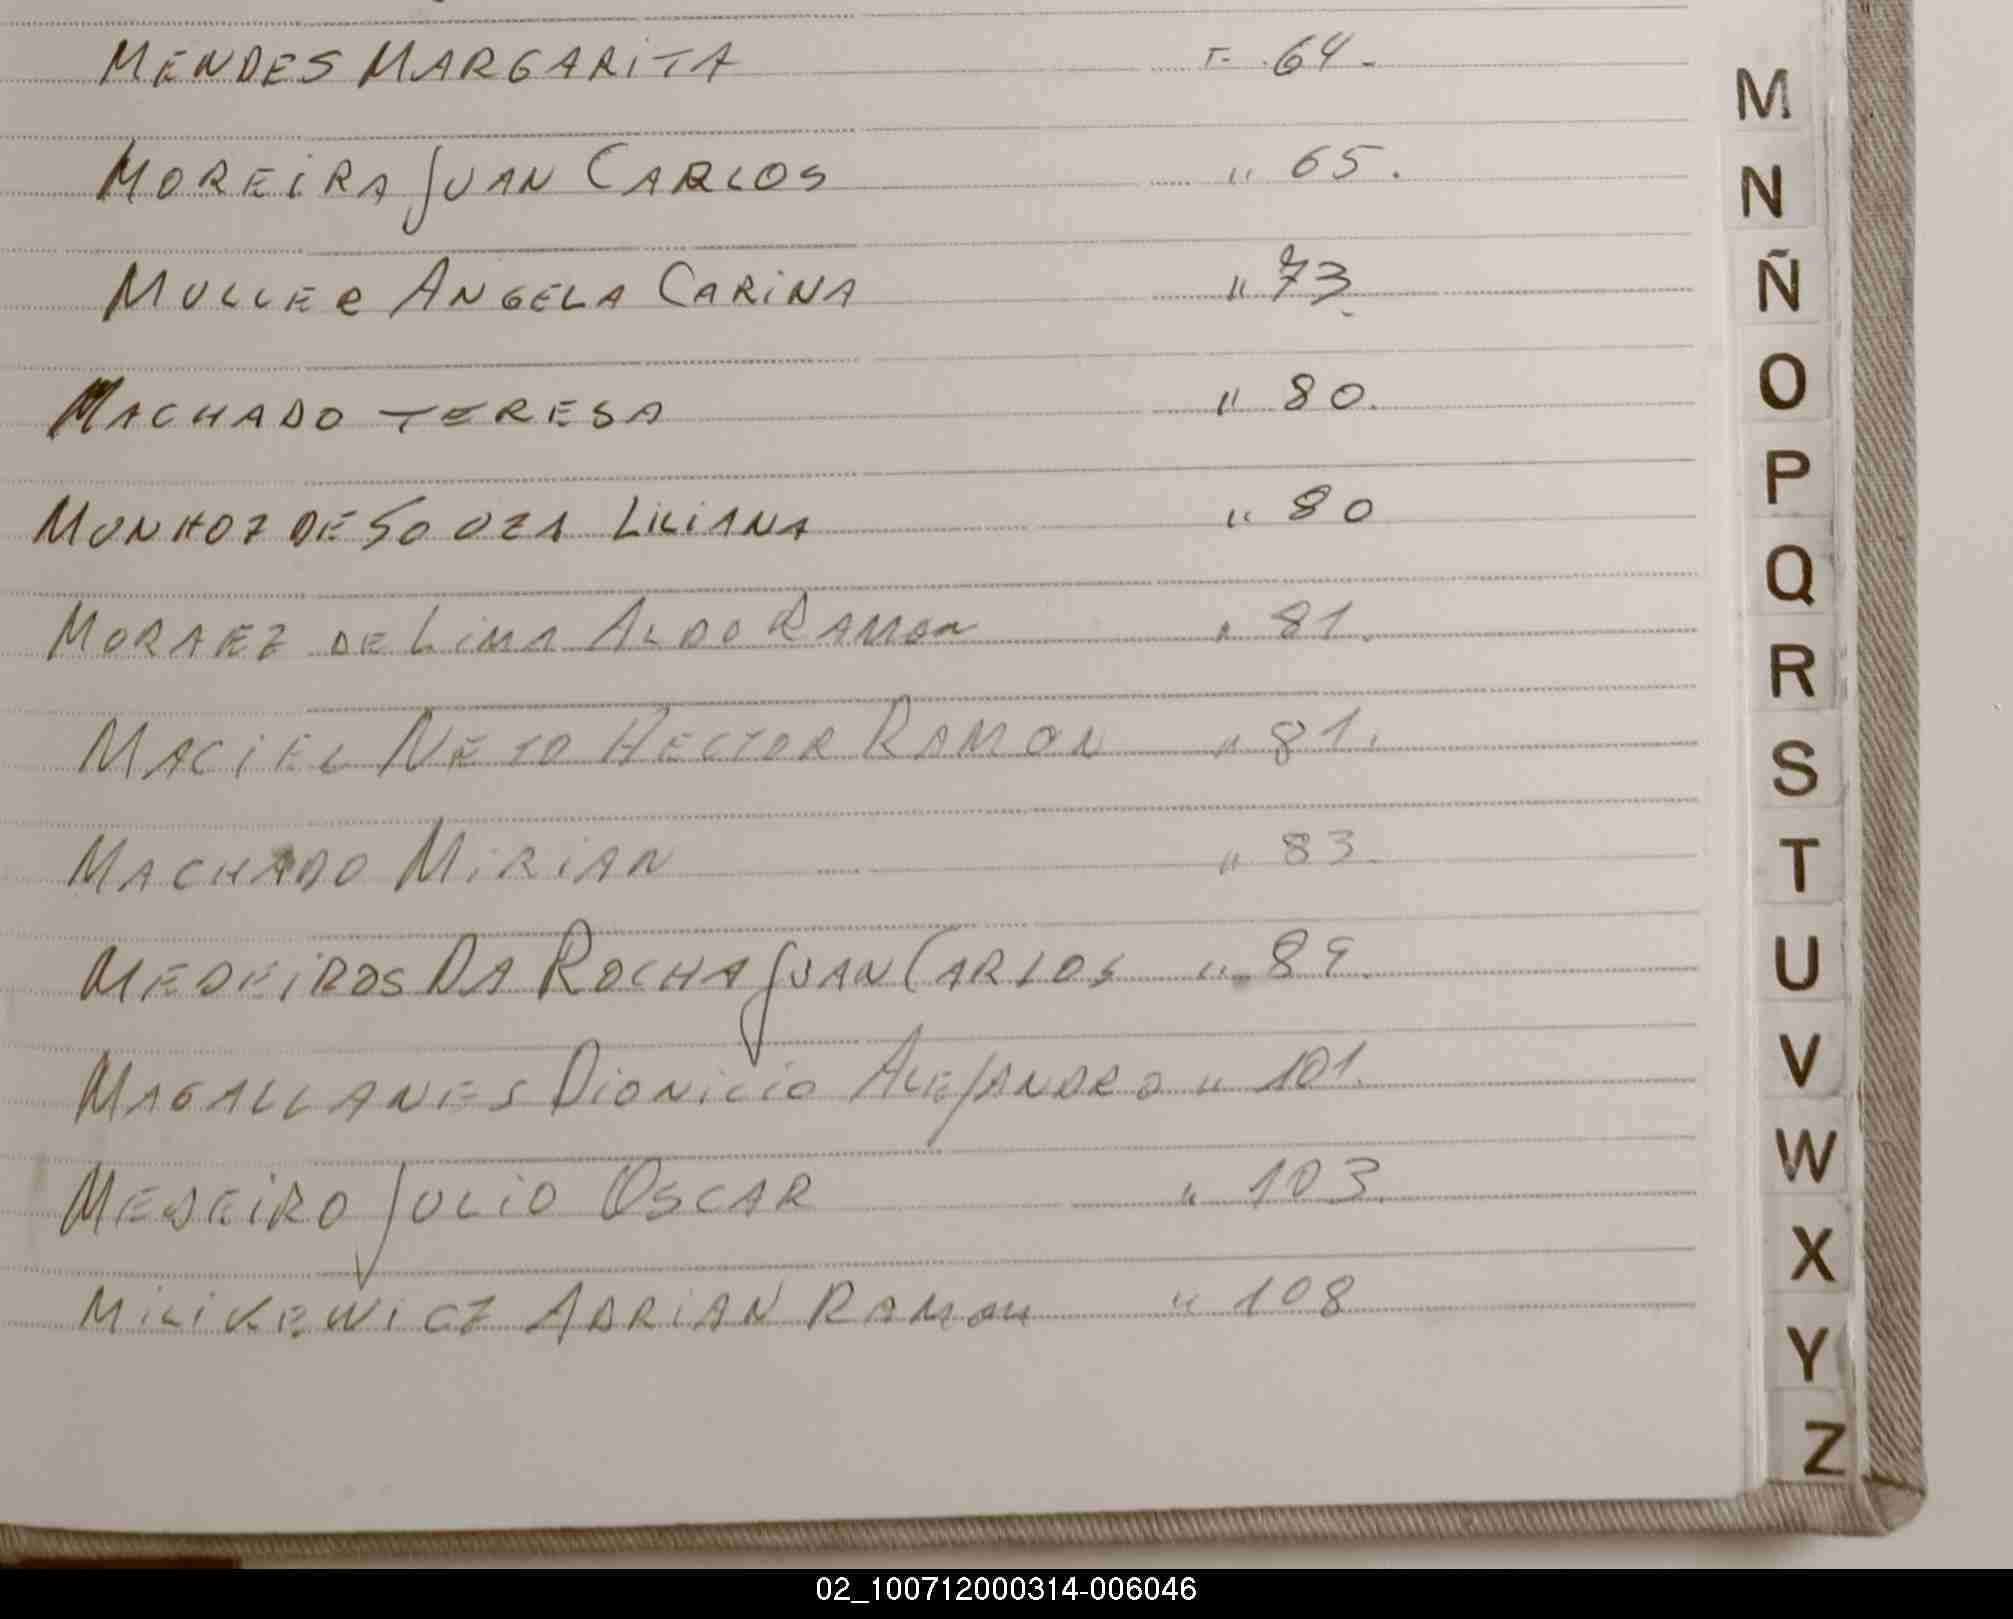 MENDES MARGARITA F- 64.
MOREIRA JUAN CARLOS " 65.
MULLER ANGELA CARINA " 73.
MACHADO TERESA " 80.
MUNHOZ DE SOUZA LILIANA " 80
MORAEZ DE LIMA ALDO RAMON " 81.
MACIEL NETO HECTOR RAMON " 81.
MACHADO MIRIAN " 83.
MEDEIROS DA ROCHA JUAN CARLOS " 89.
MAGALLANES DIONICIO ALEJANDRO " 101.
MEDEIRO JULIO OSCAR " 103.
MILIKEWICZ ADRIAN RAMON " 108
M
N
Ñ
O
P
Q
R
S
T
U
V
W
X
Y
Z
02_100712000314-006046